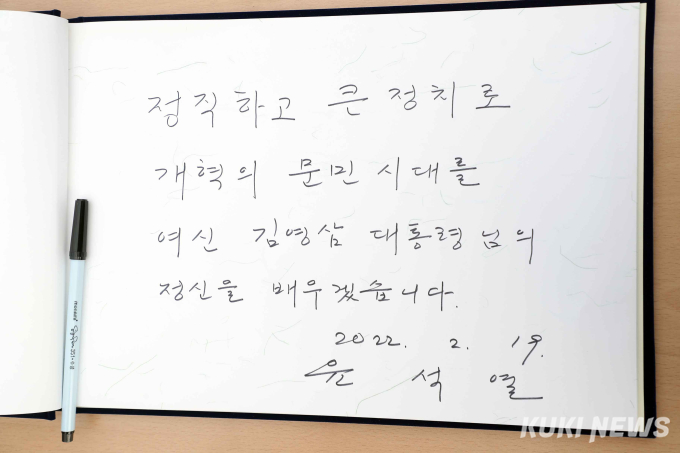 정직하고 큰 정치로
개혁의 문민 시대를
여신 김영삼 대통령님의
정신을 배우겠습니다.
2022. 2. 19.
윤 석 열
monami
KUKI NEWS